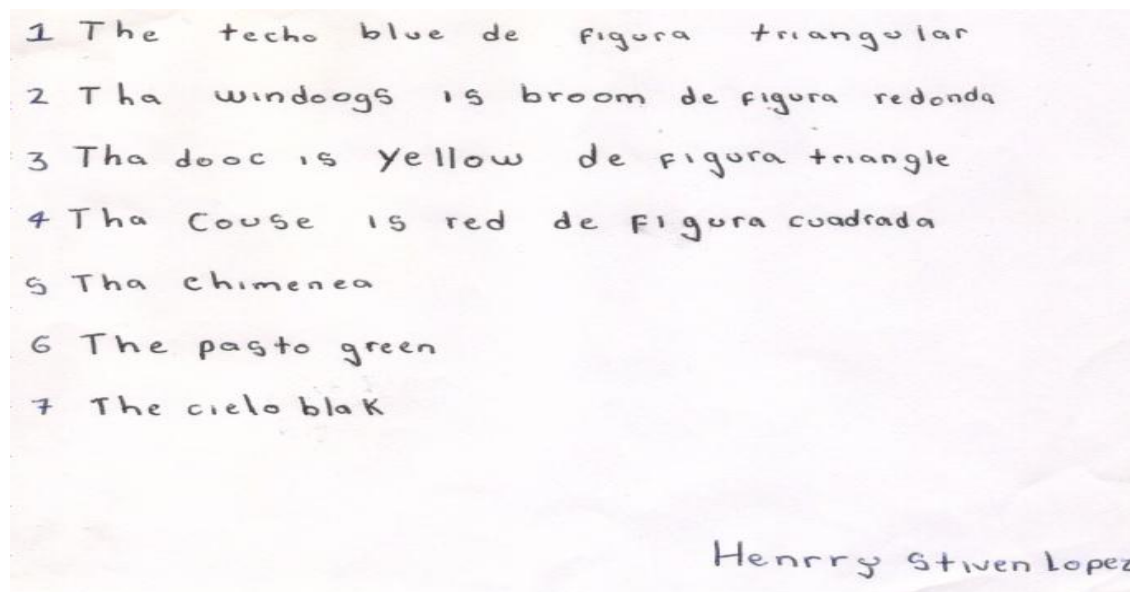 1 The techo blue de figura triangular
2 Tha windoogs is broom de figura redonda
3 Tha dooc is yellow de figura triangle
4 Tha Couse is red de Figura cuadrada
5 Tha chimenea
6 The pasto green
7 The cielo blak
Henrry Stiven Lopez